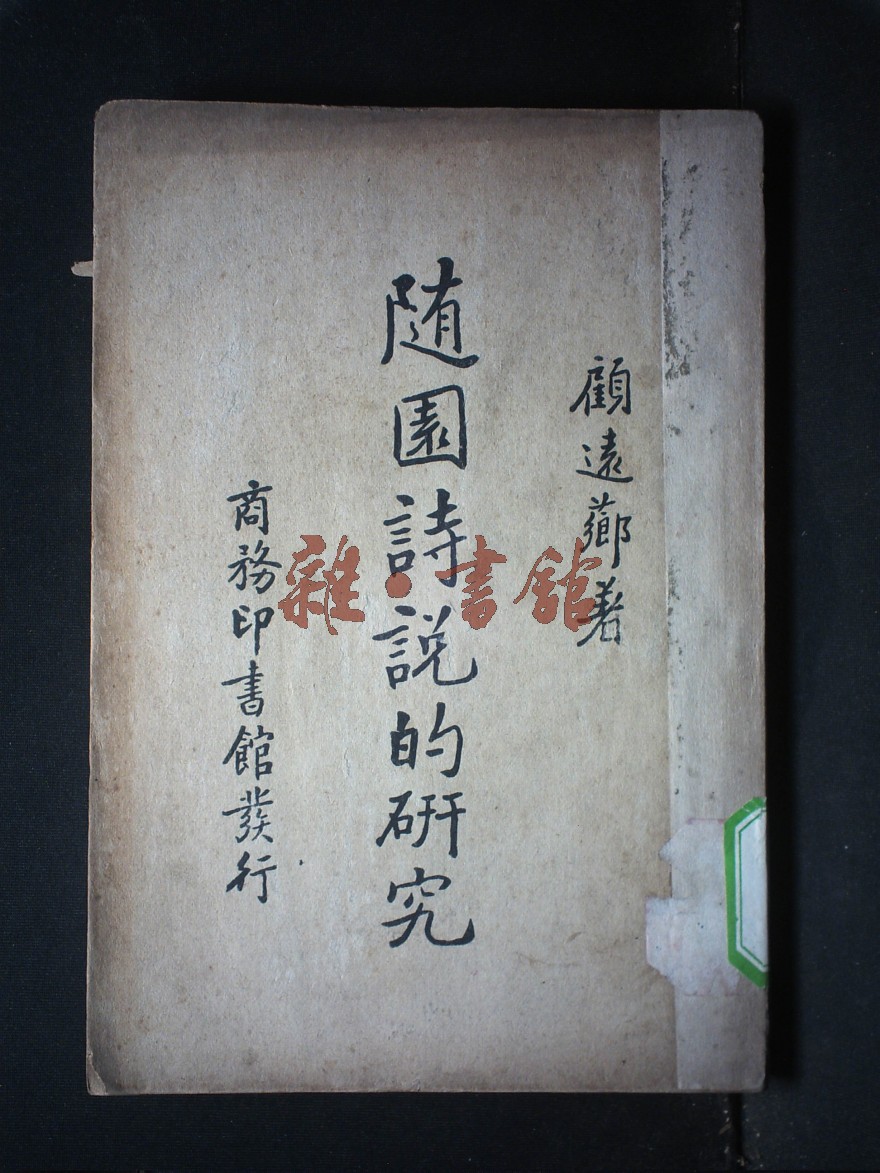 顧遠薌著
随園詩說的研究
商務印書館發行
雜·書館